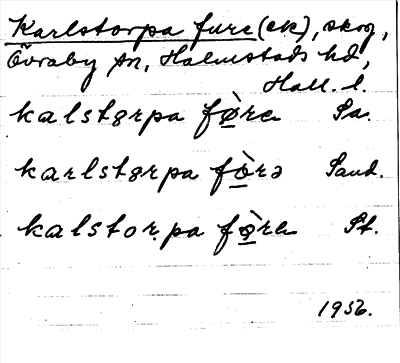 Karlstorpa fure (ek), skog,
Övraby sn, Halmstads hd,
Hall. l.
kalstɵrpa fɵ̀re Sa.
karlstɵrpa fò̱rə Sand.
kalstor̥pa fɵ̱̀re St.
1956.